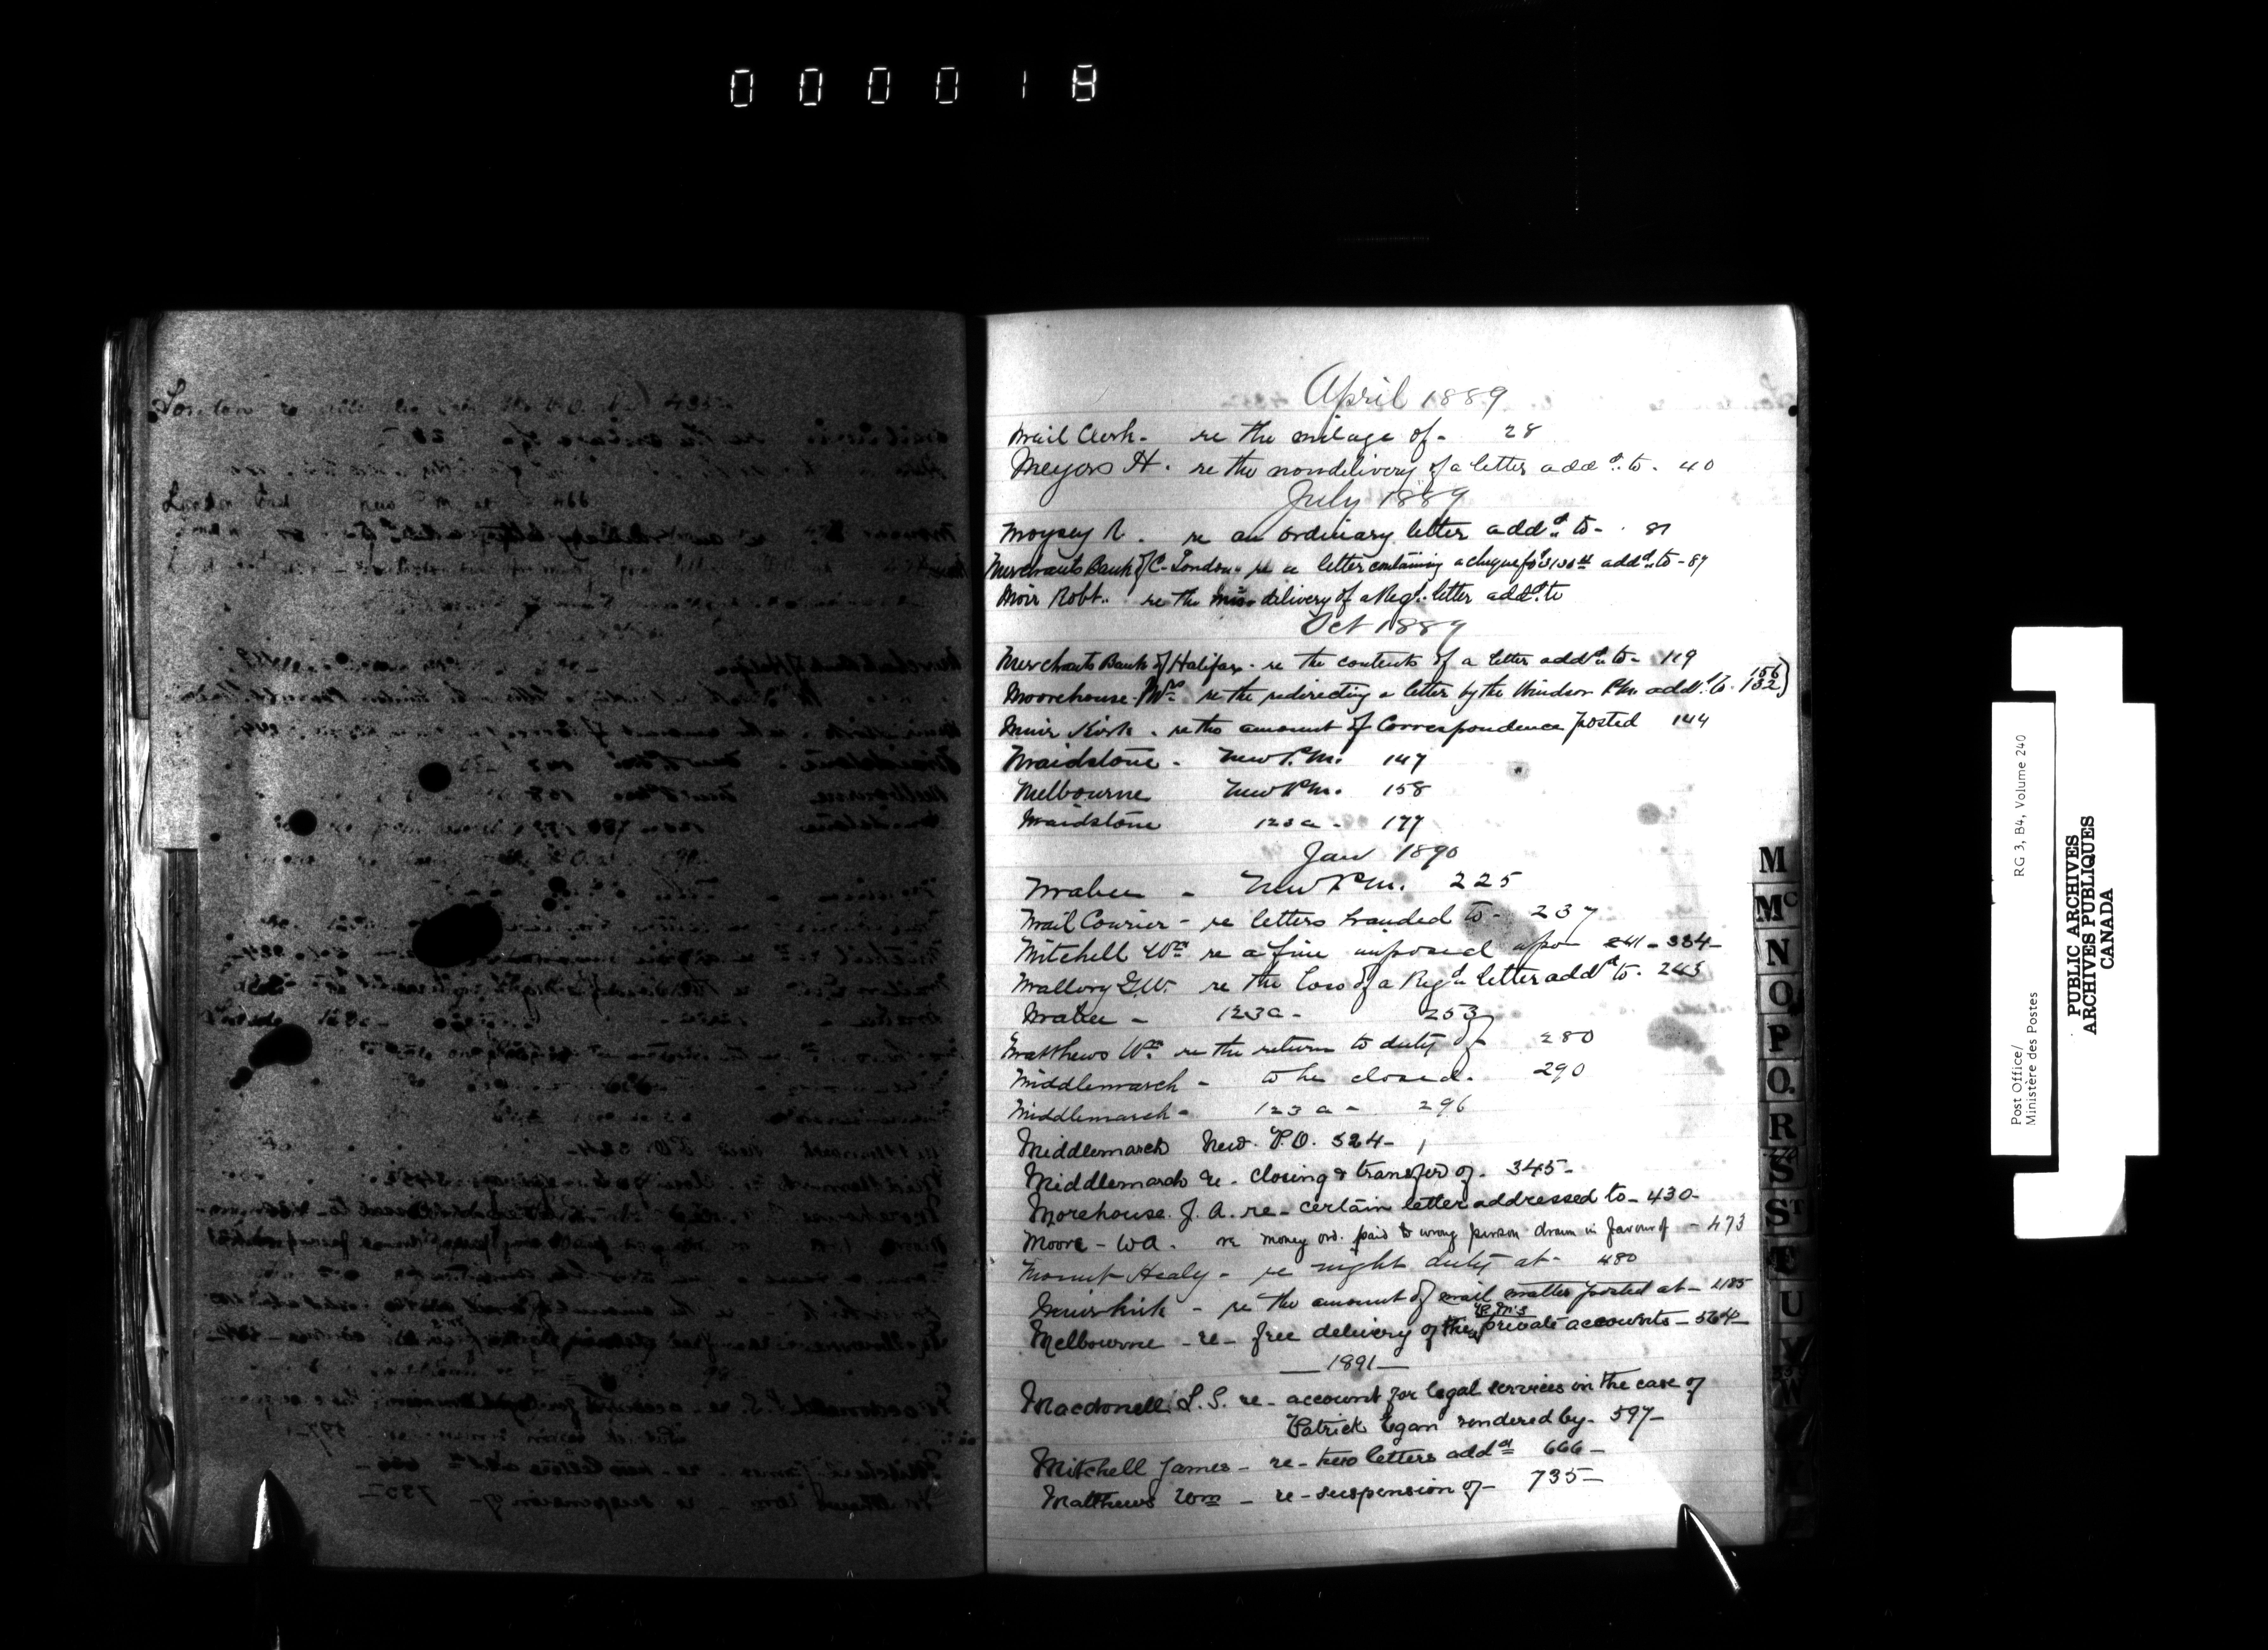 000018
London re 435
London East new P.M. at 466
April 1889
Mail Clerk - re the milage of - 28
Meyers H. re the nondelivery of a letter addd. to - 40
July 1889
Moysey R. re an ordinary letter addd. to - 81
Merchants Bank of C. London - re a letter containing a cheque for addd. to - 87
Moir Robt. re the miss delivery of a Regd. letter addd. to
Oct 1889
Merchants Bank of Halifax - re the contents of a letter addd. to - 119
Moorehouse Mrs re the redirecting a letter by the Windsor P.M. addd. to - 132) 156
Muir Kirk - re the amount of Correspondence posted 144
Maidstone - New P.M. 147
Melbourne New P.M. 158
Maidstone 123a - 177
Jan 1890
Mabee - New P.M. 225
Mail Courier - re letters handed to - 237
Mitchell Wm re a fine imposed upon 241 - 334 -
Mallory G.W. re the loss of a Regd. letter addd. to - 243
Mabee - 123a - 253
Matthews Wm re the return to duty of 280
Middlemarch - to be closed - 290
Middlemarch - 123a - 296
Middlemarch New P.O. 324 -
Middlemarch re - closing & transfer of - 345 -
Morehouse J. A. re - certain letter addressed to - 430 -
Moore - W A. re money ord. paid to wrong person drawn in favour of - 473
Mount Healy - re night duty at - 480
Muirkirk - re the amount of mail matter posted at - 485
Melbourne - re - free delivery of the P.M's private accounts - 564 -
— 1891 —
Macdonell L. S. re - account for legal services in the case of
Patrick Egan rendered by - 597 -
Mitchell James - re - two letters addd 666 -
Matthews Wm - re - suspension of - 735 -
M
Mc
N
O
P
Q.
R
S
ST
T
U
V
W
Post Office/ RG 3, B4, Volume 240
Ministère des Postes
PUBLIC ARCHIVES
ARCHIVES PUBLIQUES
CANADA